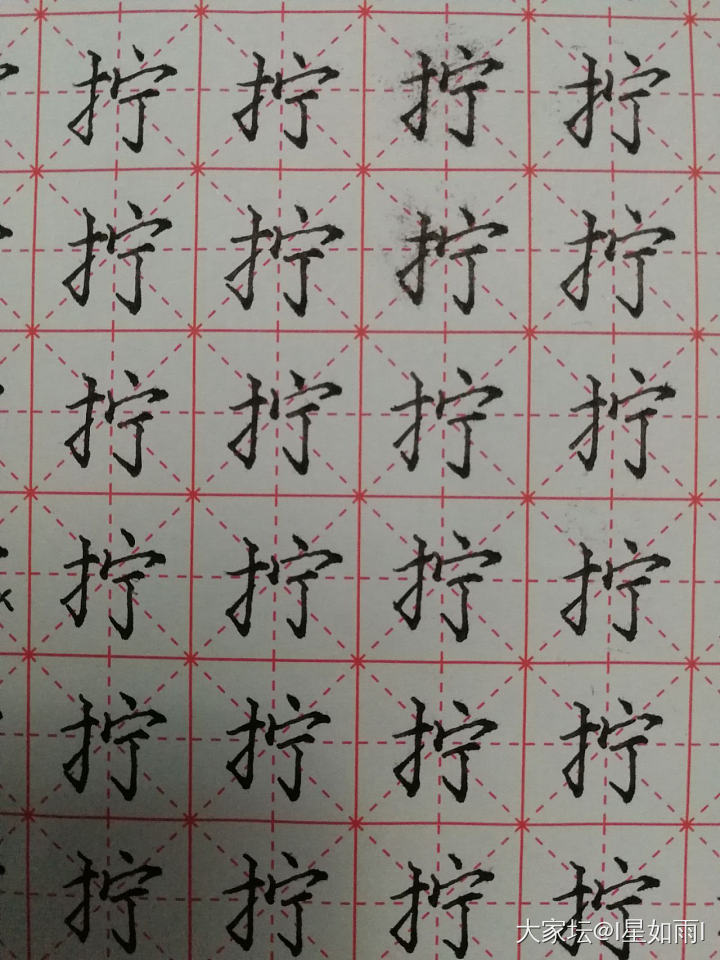 拧 拧 拧 拧
拧 拧 拧 拧
拧 拧 拧 拧
拧 拧 拧 拧
拧 拧 拧 拧
拧 拧 拧 拧
大家坛@I星如雨I